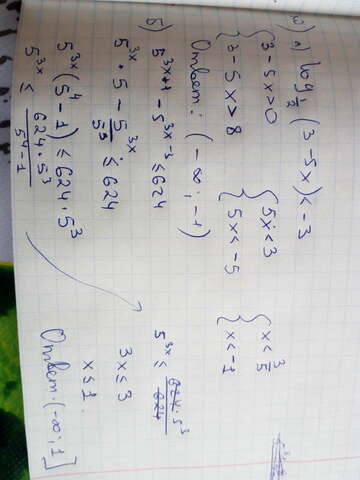 10) а) log_{1/2} (3-5x) < -3
{ 3-5x>0 { 5x<3 { x < 3/5
{ 3-5x>8 { 5x<-5 { x<-1
Ответ: (-∞; -1)
б) 5^{3x+1} - 5^{3x-3} ≤ 624
5^{3x} · 5 - 5^{3x}/5^3 ≤ 624
5^{3x}(5^4-1) ≤ 624 · 5^3
5^{3x} ≤ 624·5^3/5^4-1
5^{3x} ≤ 624·5^3/624
3x ≤ 3
x ≤ 1
Ответ: (-∞; 1]